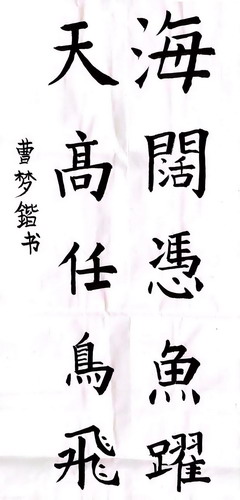 海闊憑魚躍
天高任鳥飛
曹梦鍇书